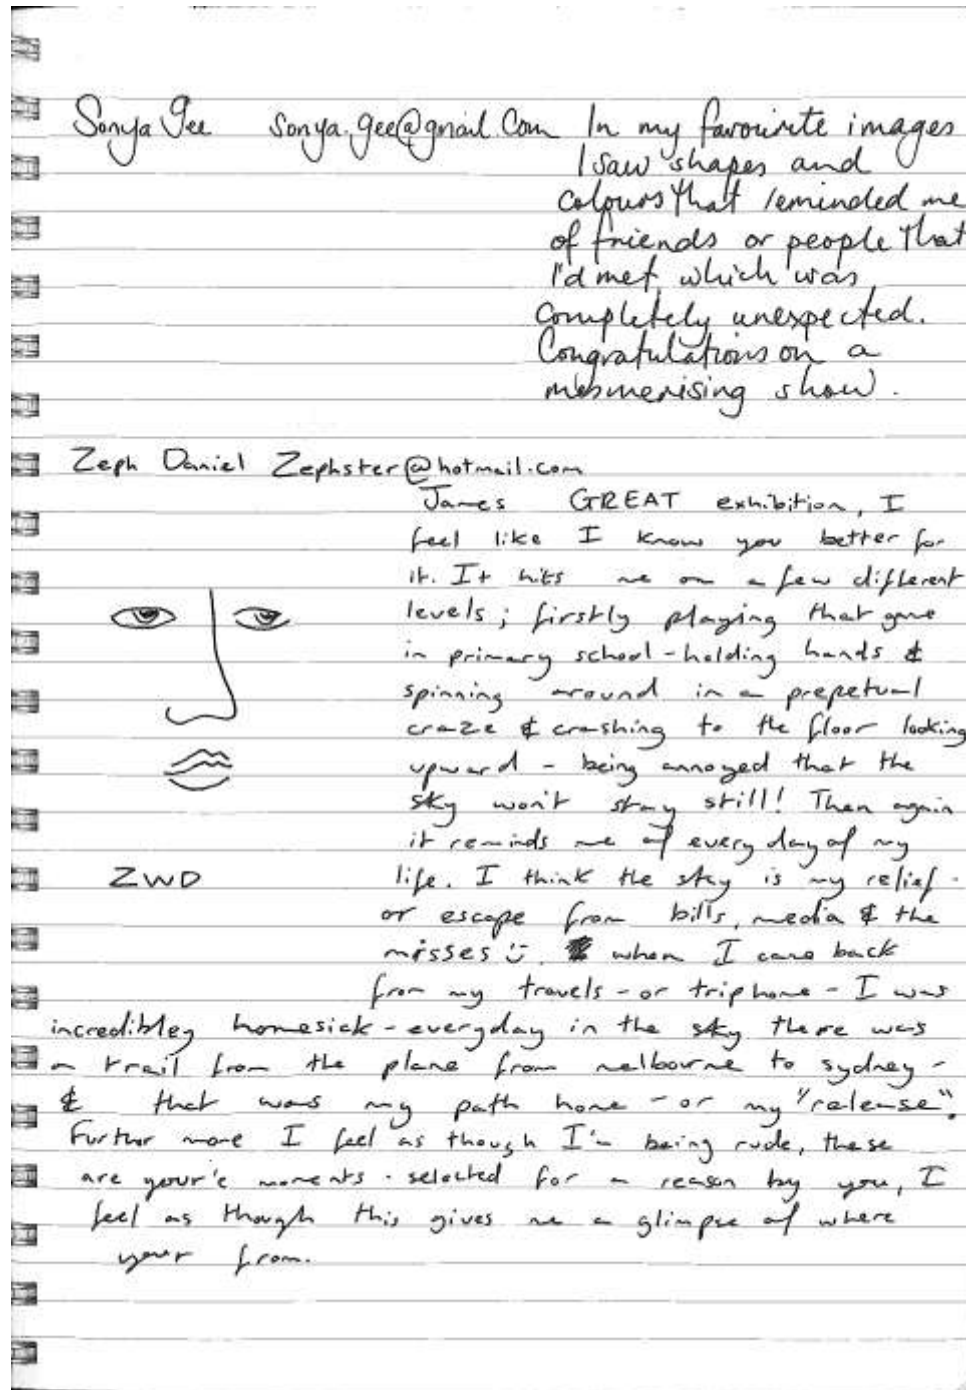 Sonya Gee sonya.gee@gmail.com In my favourite images
I saw shapes and
colours that reminded me
of friends or people that
I'd met, which was
completely unexpected.
Congratulations on a
mesmerising show.
Zeph Daniel Zephster@hotmail.com
James GREAT exhibition, I
feel like I know you better for
it. It hits me on a few different
levels; firstly playing that game
in primary school - holding hands &
spinning around in a prepetual
craze & crashing to the floor looking
upward - being annoyed that the
sky won't stay still! Then again
it reminds me of every day of my
ZWD life. I think the sky is my relief -
or escape from bills, media & the
misses :). when I came back
from my travels - or trip home - I was
incredibley homesick - everyday in the sky there was
a trail from the plane from melbourne to sydney -
& that was my path home - or my "release".
Further more I feel as though I'm being rude, these
are your'e moments - selected for a reason by you, I
feel as though this gives me a glimpse of where
your from.